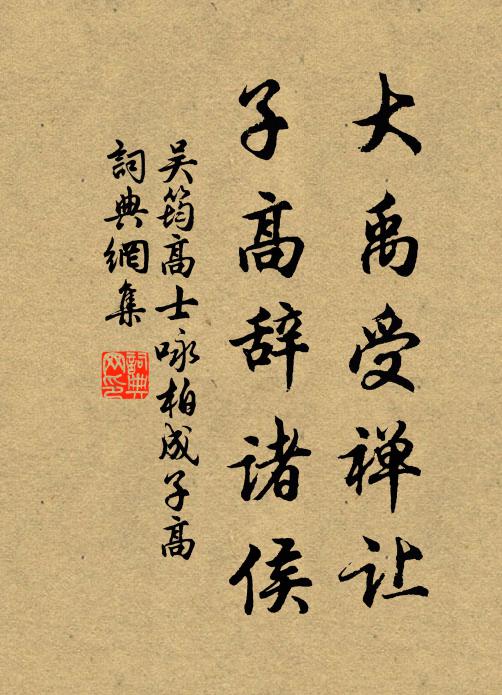 大禹受禅让
子高辞诸侯
吴筠高士咏柏成子高
詞典網集
詞典
网印